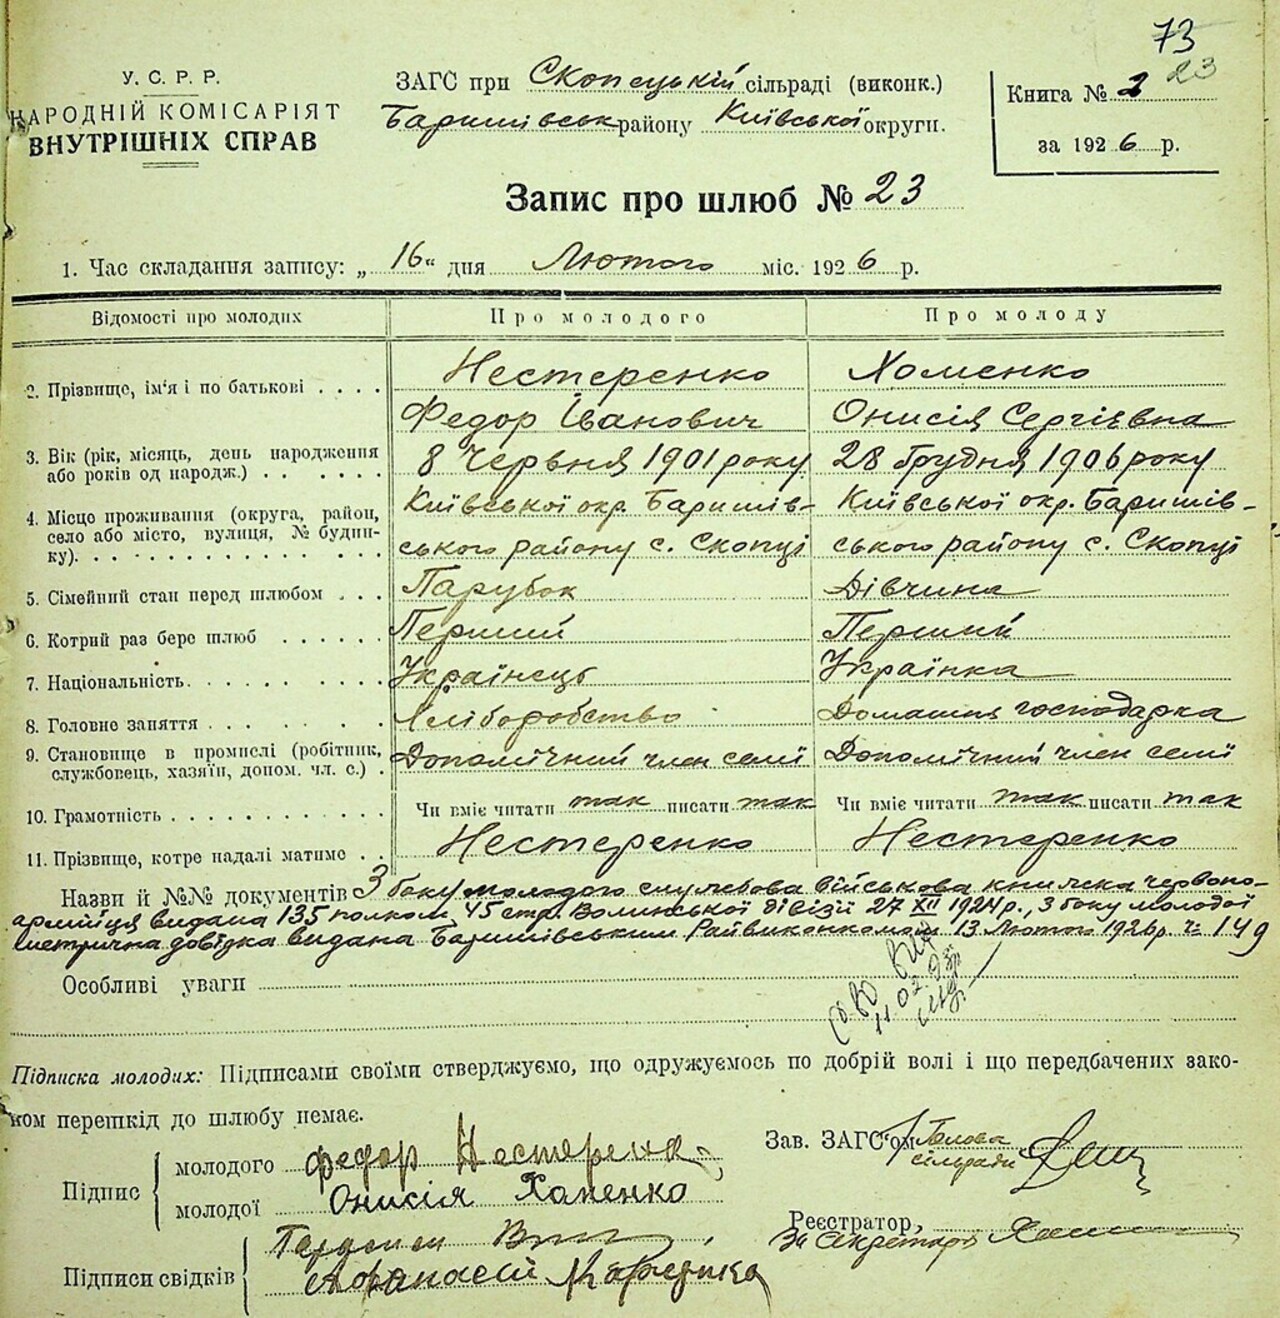 73
23
У. С. Р. Р.
НАРОДНІЙ КОМІСАРІЯТ
ВНУТРІШНІХ СПРАВ
ЗАГС при Скопецькій сільраді (виконк.)
Баришівськ району Київської округи.
Книга № 2
за 1926 р.
Запис про шлюб № 23
1. Час складання запису: „16“ дня Лютого міс. 1926 р.
Відомості про молодих
Про молодого
Про молоду
2. Прізвище, ім'я і по батькові . . . .
Нестеренко
Хоменко
Федор Іванович
Онисія Сергіївна
3. Вік (рік, місяць, день народження
або років од народж.) . . . . . .
8 Червня 1901 року
28 грудня 1906 року
4. Місце проживання (округа, район,
село або місто, вулиця, № будин-
ку). . . . . . . . . . . . .
Київської окр. Баришів-
ського району с. Скопці
Київської окр. Баришів-
ського району с. Скопці
5. Сімейний стан перед шлюбом . . .
Парубок
Дівчина
6. Котрий раз бере шлюб . . . . . .
Перший
Перший
7. Національність. . . . . . . . .
Українець
Українка
8. Головне заняття . . . . . . . .
Хліборобство
Домашня господарка
9. Становище в промислі (робітник,
службовець, хазяїн, допом. чл. с.) .
Допомічний член семії
Допомічний член семії
10. Грамотність . . . . . . . . . . .
Чи вміє читати так писати так
Чи вміє читати так писати так
11. Прізвище, котре надалі матиме . .
Нестеренко
Нестеренко
Назви й №№ документів З боку молодого службова військова книжка червоно-
армійця видана 135 полком 45 стр. Волинської дівізії 27 XII 1924 р., З боку молодої
метрична довідка видана Баришівським Райвиконкомом 13 Лютого 1926 р. ч. 149
Особливі уваги
Підписка молодих: Підписами своїми стверджуємо, що одружуємось по добрій волі і що передбачених зако-
ном перешкід до шлюбу немає.
Підпис
молодого Федор Нестеренко
молодої Онисія Хоменко
Зав. ЗАГС'ом Голова
сільради
Реєстратор,
За Секретаря
Підписи свідків
Афанасій